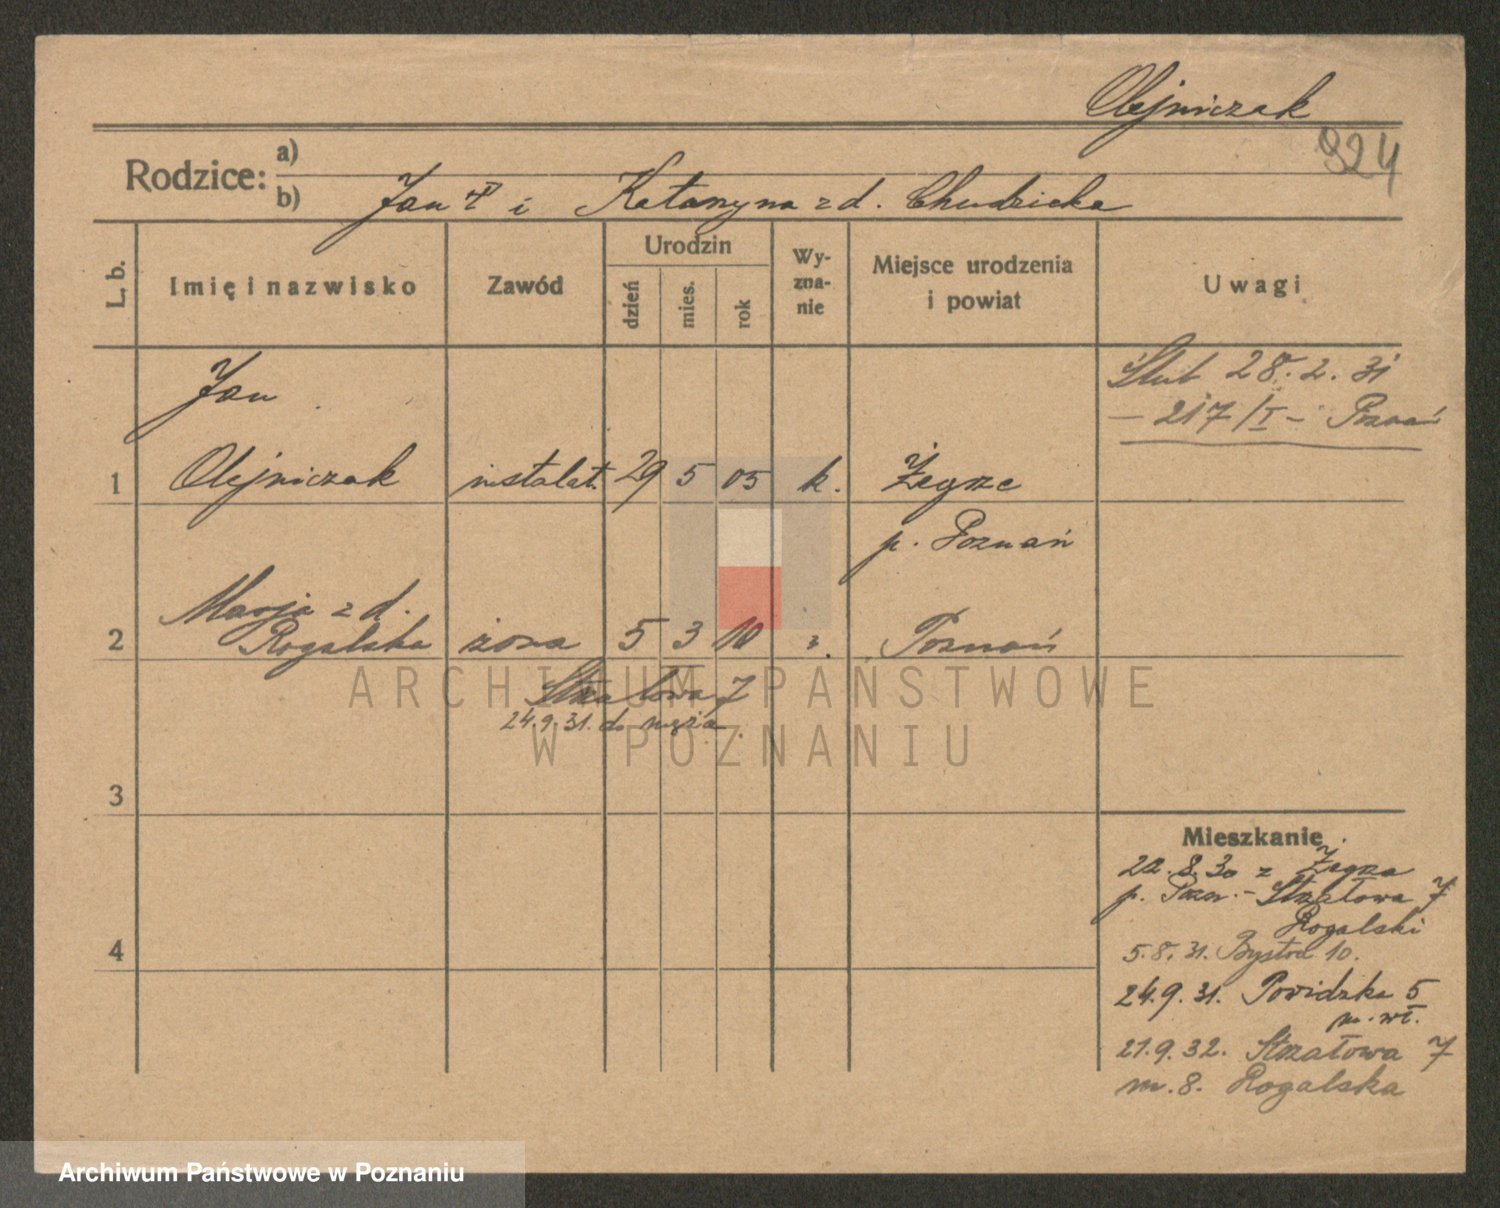 Olejniczak
924
Rodzice: a)
b) Jan i Katarzyna z d. Chudzicka
L. b.
Imię i nazwisko
Zawód
Urodzin
dzień
mies.
rok
Wy-
zna-
nie
Miejsce urodzenia
i powiat
Uwagi
Jan
Ślub 28.2.31
– 217/I – Poznań
1 Olejniczak instalat. 29 5 05 k. Żegrze
p. Poznań
Marja z d.
2 Rogalska żona 5 3 10 Poznań
Strzałowa 7
24.9.31. do męża.
3
4
Mieszkanie
22.8.30 z Żegrza
p. Pozn. – Strzałowa 7
Rogalski
5.8.31. Bystra 10.
24.9.31. Powidzka 5
m. wł.
21.9.32. Strzałowa 7
m. 8. Rogalska
ARCHIWUM PAŃSTWOWE
W POZNANIU
Archiwum Państwowe w Poznaniu